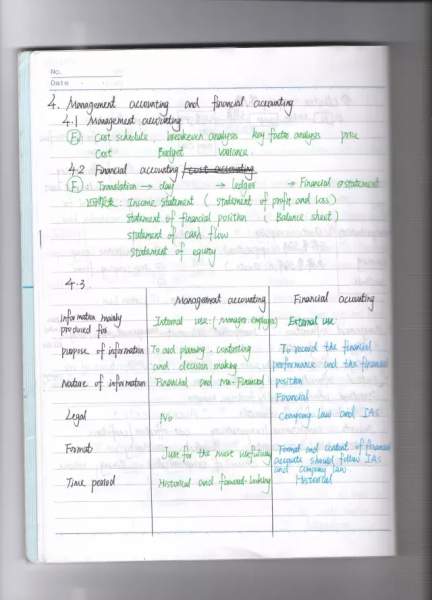 No.
Date
4. Management accounting and financial accounting
4.1 Management accounting
F2 Cost schedule, breakeven analysis key factor analysis price
Cost Budget variance
4.2 Financial accounting / cost accounting
F3 Translation → day → ledger → Financial statement
Income Statement ( statement of profit and loss )
Statement of financial position ( Balance sheet )
Statement of cash flow
Statement of equity
4.3
Management accounting Financial accounting
Information mainly produced for Internal use: ( Manager employee) External use
purpose of information To aid planning, controlling and decision making To record the financial performance and the financial position
Nature of information Financial and Non-Financial Financial
Legal No Company law and IAS
Format Just for the most usefulness Format and content of financial accounts should follow IAS and company law
Time period Historical and forward-looking Historical